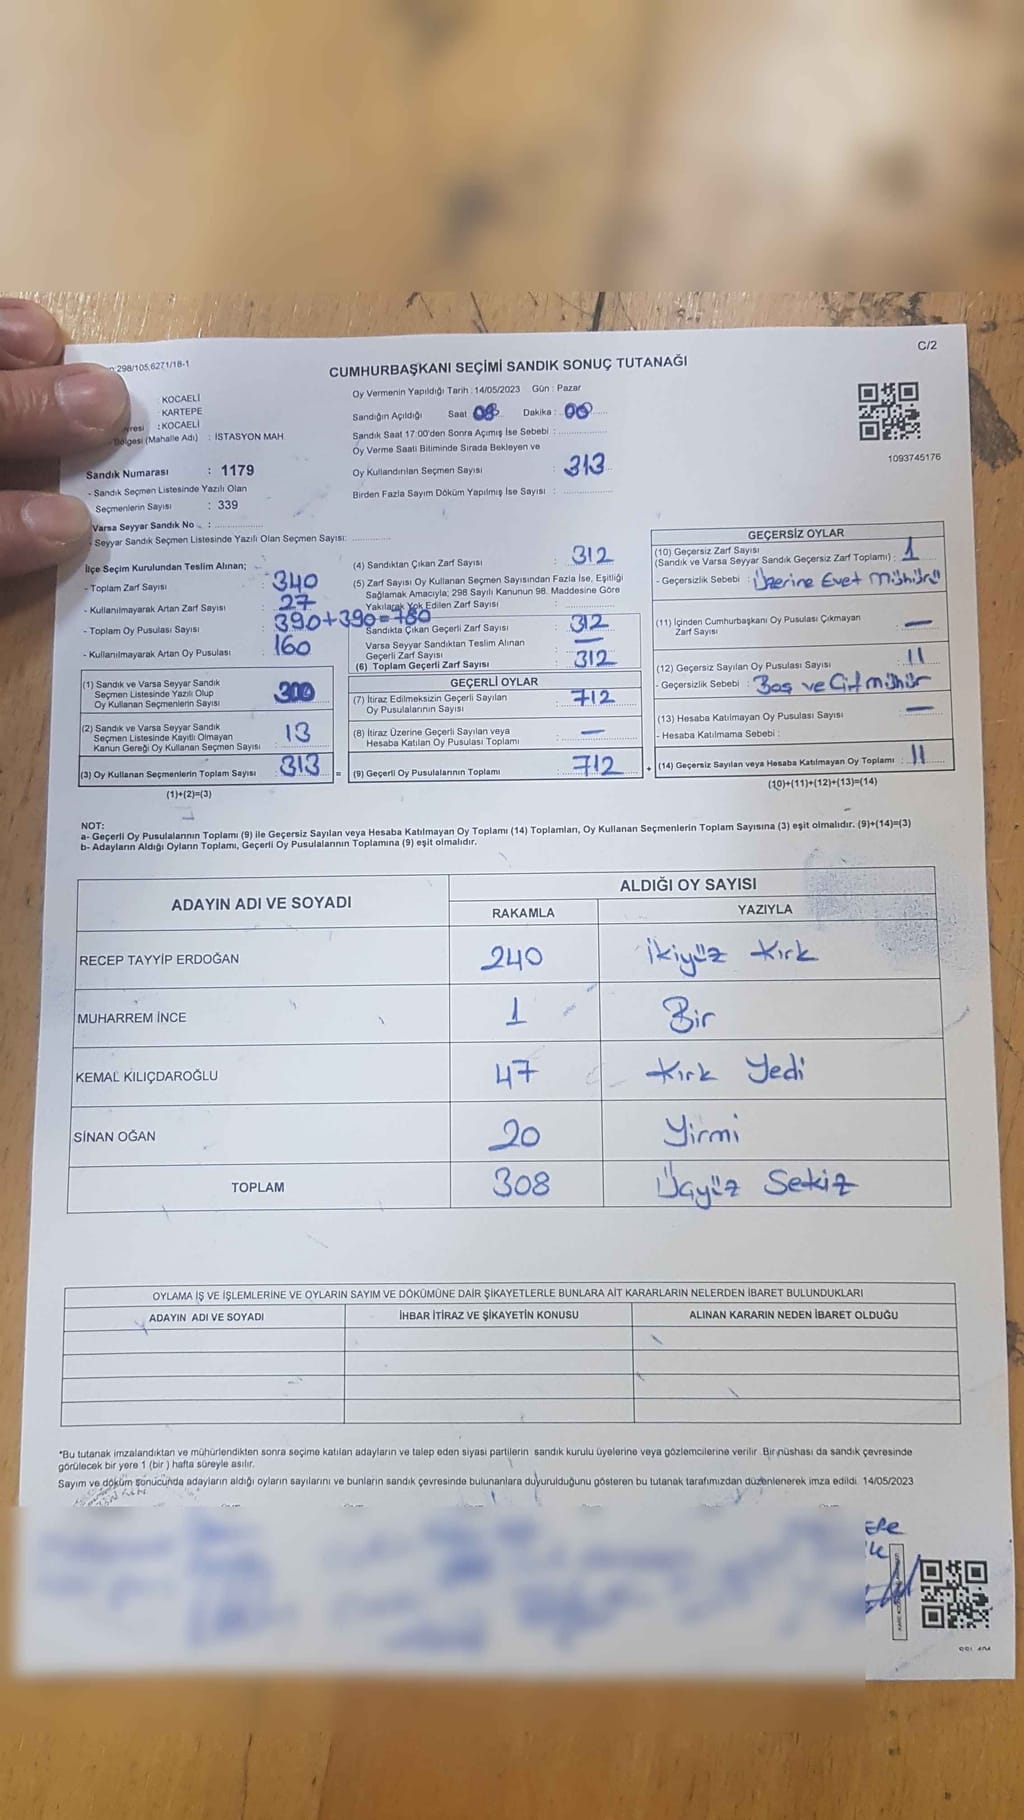 298/105,6271/18-1
C/2
CUMHURBAŞKANI SEÇİMİ SANDIK SONUÇ TUTANAĞI
KOCAELİ
KARTEPE
: KOCAELİ
(Mahalle Adı) : İSTASYON MAH
Sandık Numarası : 1179
- Sandık Seçmen Listesinde Yazılı Olan
Seçmenlerin Sayısı : 339
Varsa Seyyar Sandık No :
- Seyyar Sandık Seçmen Listesinde Yazılı Olan Seçmen Sayısı:
Oy Vermenin Yapıldığı Tarih : 14/05/2023 Gün : Pazar
Sandığın Açıldığı Saat 08 Dakika : 00
Sandık Saat 17:00'den Sonra Açımış İse Sebebi :
Oy Verme Saati Bitiminde Sırada Bekleyen ve
Oy Kullandırılan Seçmen Sayısı : 313
Birden Fazla Sayım Döküm Yapılmış İse Sayısı :
1093745176
İlçe Seçim Kurulundan Teslim Alınan;
- Toplam Zarf Sayısı : 340
- Kullanılmayarak Artan Zarf Sayısı : 27
- Toplam Oy Pusulası Sayısı : 390+390=780
- Kullanılmayarak Artan Oy Pusulası : 160
(1) Sandık ve Varsa Seyyar Sandık
Seçmen Listesinde Yazılı Olup
Oy Kullanan Seçmenlerin Sayısı 300
(2) Sandık ve Varsa Seyyar Sandık
Seçmen Listesinde Kayıtlı Olmayan
Kanun Gereği Oy Kullanan Seçmen Sayısı : 13
(3) Oy Kullanan Seçmenlerin Toplam Sayısı : 313
(1)+(2)=(3)
(4) Sandıktan Çıkan Zarf Sayısı : 312
(5) Zarf Sayısı Oy Kullanan Seçmen Sayısından Fazla İse, Eşitliği
Sağlamak Amacıyla; 298 Sayılı Kanunun 98. Maddesine Göre
Yakılarak Yok Edilen Zarf Sayısı :
Sandıkta Çıkan Geçerli Zarf Sayısı : 312
Varsa Seyyar Sandıktan Teslim Alınan
Geçerli Zarf Sayısı : —
(6) Toplam Geçerli Zarf Sayısı : 312
GEÇERLİ OYLAR
(7) İtiraz Edilmeksizin Geçerli Sayılan
Oy Pusulalarının Sayısı : 712
(8) İtiraz Üzerine Geçerli Sayılan veya
Hesaba Katılan Oy Pusulası Toplamı : —
= (9) Geçerli Oy Pusulalarının Toplamı : 712
GEÇERSİZ OYLAR
(10) Geçersiz Zarf Sayısı
(Sandık ve Varsa Seyyar Sandık Geçersiz Zarf Toplamı) : 1
- Geçersizlik Sebebi : Üzerine Evet Mühürü
(11) İçinden Cumhurbaşkanı Oy Pusulası Çıkmayan
Zarf Sayısı : —
(12) Geçersiz Sayılan Oy Pusulası Sayısı : 11
- Geçersizlik Sebebi : Boş ve Çift mühür
(13) Hesaba Katılmayan Oy Pusulası Sayısı : —
- Hesaba Katılmama Sebebi :
+ (14) Geçersiz Sayılan veya Hesaba Katılmayan Oy Toplamı : 11
(10)+(11)+(12)+(13)=(14)
NOT:
a- Geçerli Oy Pusulalarının Toplamı (9) ile Geçersiz Sayılan veya Hesaba Katılmayan Oy Toplamı (14) Toplamları, Oy Kullanan Seçmenlerin Toplam Sayısına (3) eşit olmalıdır. (9)+(14)=(3)
b- Adayların Aldığı Oyların Toplamı, Geçerli Oy Pusulalarının Toplamına (9) eşit olmalıdır.
ADAYIN ADI VE SOYADI ALDIĞI OY SAYISI
RAKAMLA YAZIYLA
RECEP TAYYİP ERDOĞAN 240 İkiyüz Kırk
MUHARREM İNCE 1 Bir
KEMAL KILIÇDAROĞLU 47 Kırk Yedi
SİNAN OĞAN 20 Yirmi
TOPLAM 308 Üçyüz Sekiz
OYLAMA İŞ VE İŞLEMLERİNE VE OYLARIN SAYIM VE DÖKÜMÜNE DAİR ŞİKAYETLERLE BUNLARA AİT KARARLARIN NELERDEN İBARET BULUNDUKLARI
ADAYIN ADI VE SOYADI İHBAR İTİRAZ VE ŞİKAYETİN KONUSU ALINAN KARARIN NEDEN İBARET OLDUĞU
*Bu tutanak imzalandıktan ve mühürlendikten sonra seçime katılan adayların ve talep eden siyasi partilerin sandık kurulu üyelerine veya gözlemcilerine verilir. Bir nüshası da sandık çevresinde
görülecek bir yere 1 (bir ) hafta süreyle asılır.
Sayım ve döküm sonucunda adayların aldığı oyların sayılarını ve bunların sandık çevresinde bulunanlara duyurulduğunu gösteren bu tutanak tarafımızdan düzenlenerek imza edildi. 14/05/2023